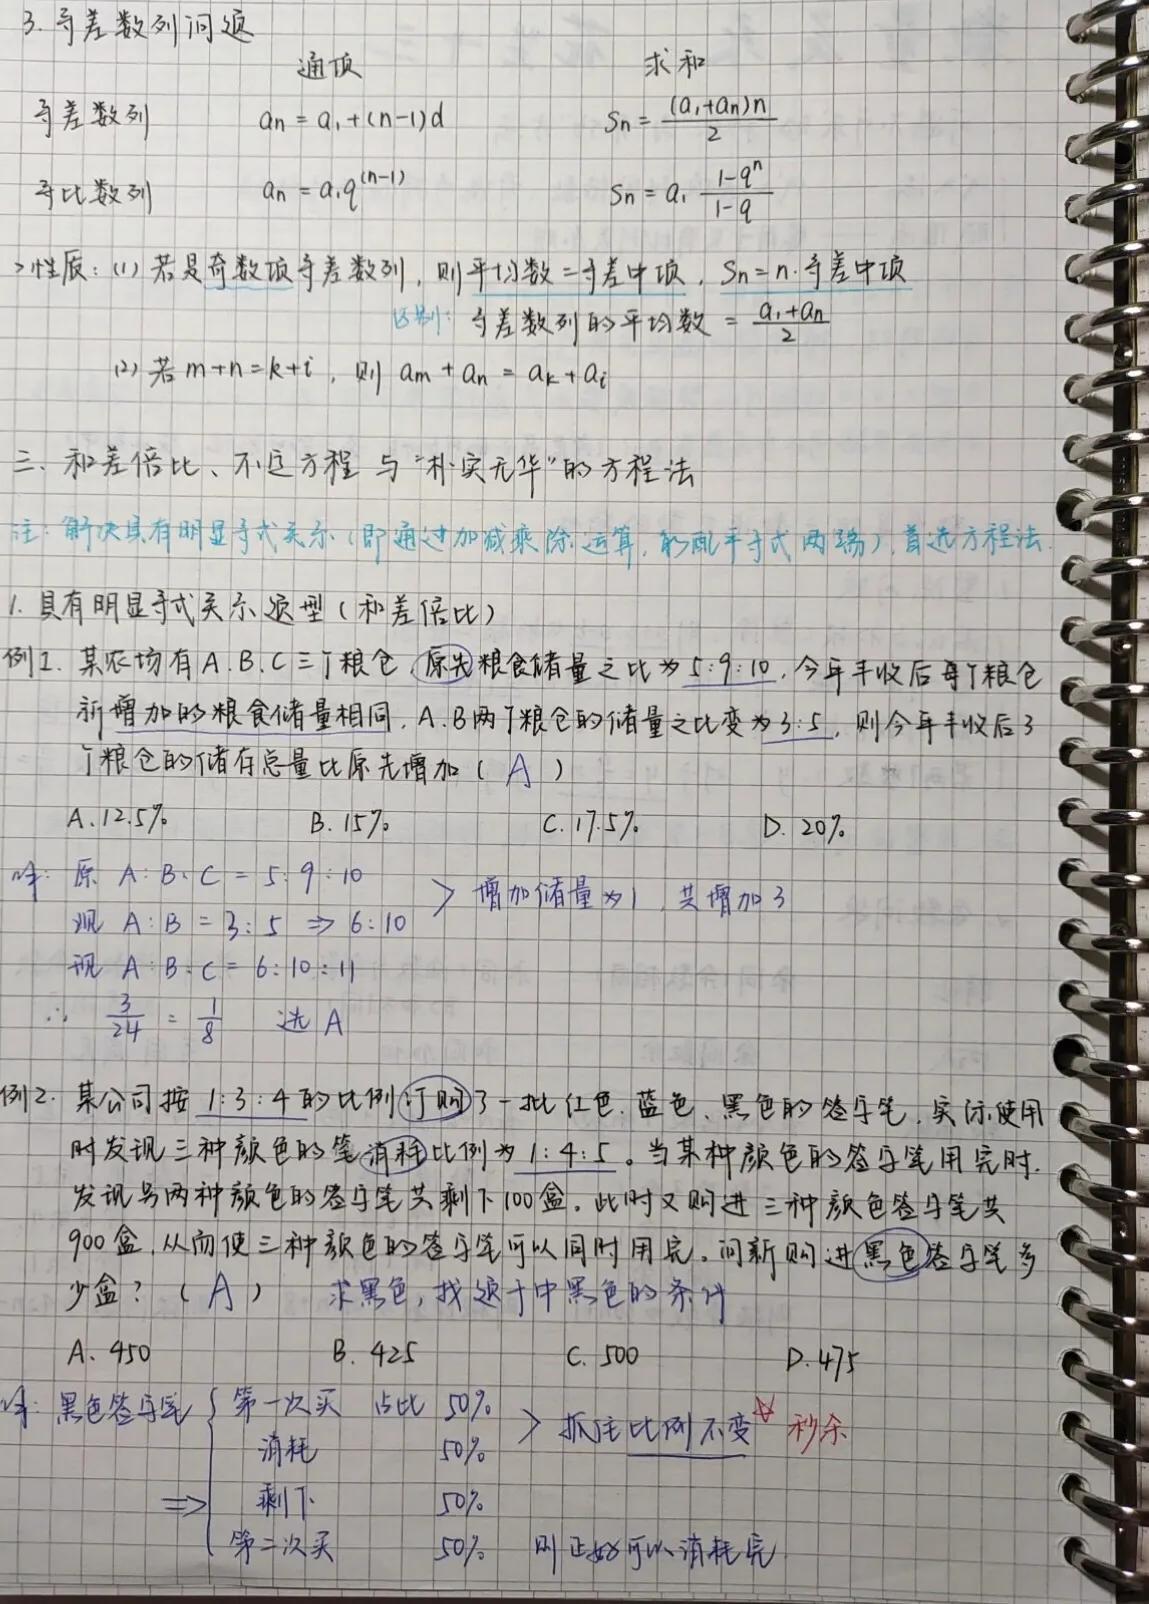 3. 等差数列问题
通项 求和
等差数列 an = a₁+(n-1)d Sn = (a₁+an)n/2
等比数列 an = a₁q^(n-1) Sn = a₁ (1-qⁿ)/(1-q)
>性质：(1) 若是奇数项等差数列，则平均数=等差中项，Sn=n·等差中项
区别：等差数列的平均数 = (a₁+an)/2
(2) 若 m+n=k+i，则 am+an = ak+ai
三、和差倍比、不定方程与“朴实无华”的方程法
注：解决具有明显等式关系(即通过加减乘除运算，能配平等式两端)，首选方程法.
1. 具有明显等式关系题型(和差倍比)
例1. 某农场有A.B.C三个粮仓 原先粮食储量之比为5:9:10，今年丰收后每个粮仓
新增加的粮食储量相同，A.B两个粮仓的储量之比变为3:5，则今年丰收后3
个粮仓的储存总量比原先增加( A )
A.12.5% B. 15% C. 17.5% D. 20%
解: 原 A:B:C = 5:9:10
现 A:B = 3:5 ⇒ 6:10 > 增加储量为1，共增加3
现 A:B:C = 6:10:11
∴ 3/24 = 1/8 选A
例2. 某公司按 1:3:4 的比例订购了一批红色、蓝色、黑色的签字笔，实际使用
时发现三种颜色的笔消耗比例为1:4:5。当某种颜色的签字笔用完时，
发现另两种颜色的签字笔共剩下100盒，此时又购进三种颜色签字笔共
900盒，从而使三种颜色的签字笔可以同时用完。问新购进黑色签字笔多
少盒？( A ) 求黑色，找题干中黑色的条件
A. 450 B. 425 C. 500 D. 475
解: 黑色签字笔 { 第一次买 占比 50%
消耗 50% > 抓住比例不变☆ 秒杀
⇒ 剩下 50%
第二次买 50% 则正好可以消耗完